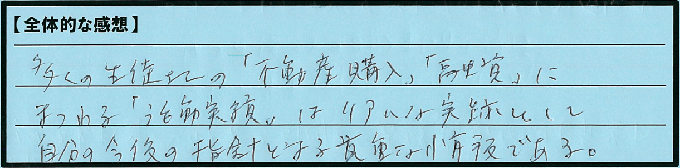 【全体的な感想】
多くの生徒さんの「不動産購入」「高史資」に
まつわる「活動実績」はリアルな実跡として
自分の今後の指針となる貴重な情報である。